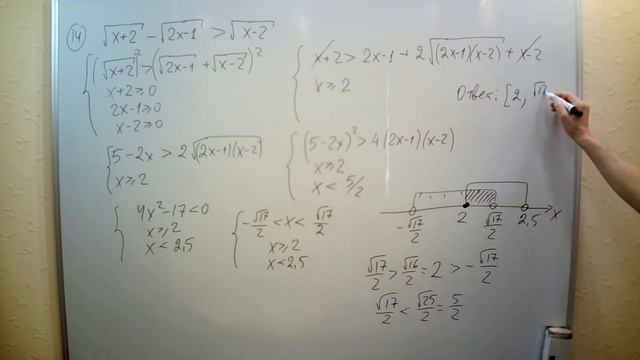 14) √(x+2) − √(2x−1) > √(x−2)
{ (√(x+2))² > (√(2x−1) + √(x−2))²
x+2 ≥ 0
2x−1 ≥ 0
x−2 ≥ 0
{ x+2 > 2x−1 + 2√((2x−1)(x−2)) + x−2
x ≥ 2
{ 5−2x > 2√((2x−1)(x−2))
x ≥ 2
{ (5−2x)² > 4(2x−1)(x−2)
x ≥ 2
x < 5/2
{ 4x²−17 < 0
x ≥ 2
x < 2,5
{ −√17/2 < x < √17/2
x ≥ 2
x < 2,5
−√17/2 2 √17/2 2,5 x
√17/2 > √16/2 = 2 > −√17/2
√17/2 < √25/2 = 5/2
Ответ: [2; √17